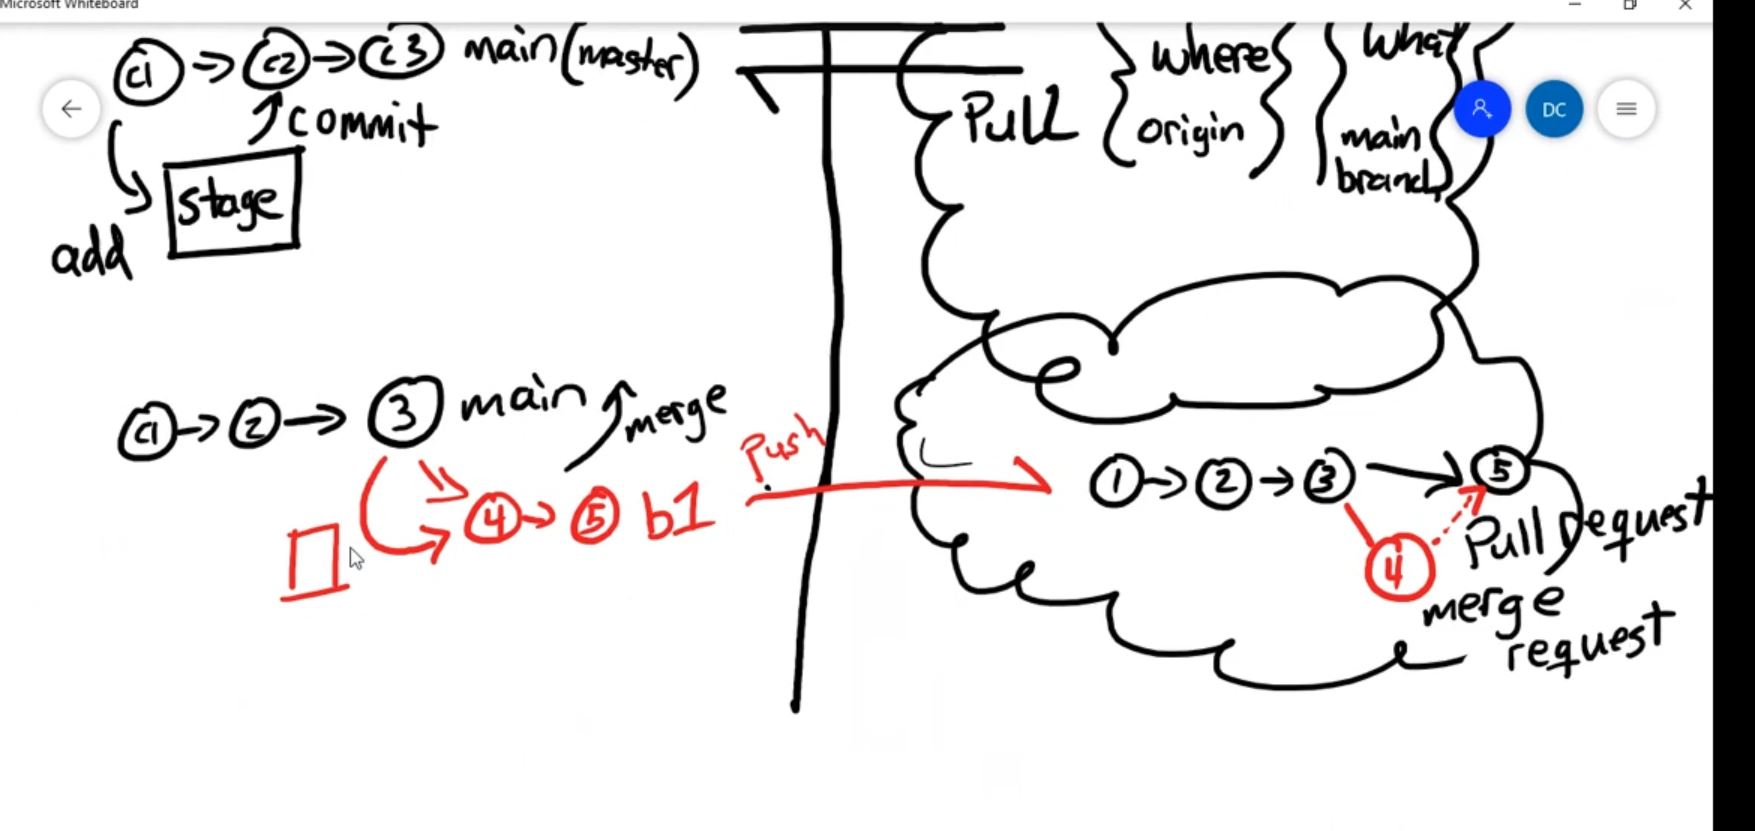 Microsoft Whiteboard
c1 c2 c3 main (master)
commit
stage
add
Pull
where
origin
what
main
branch
DC
c1 2 3 main
merge
4 5 b1
Push
1 2 3 5
4
Pull request
merge
request